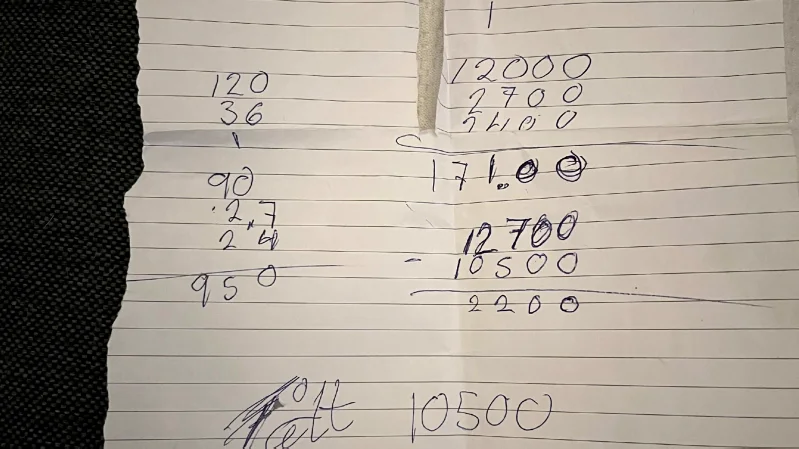 120
36
90
2.7
2.4
950
12000
2700
2400
171.00
12700
- 10500
2200
left 10500